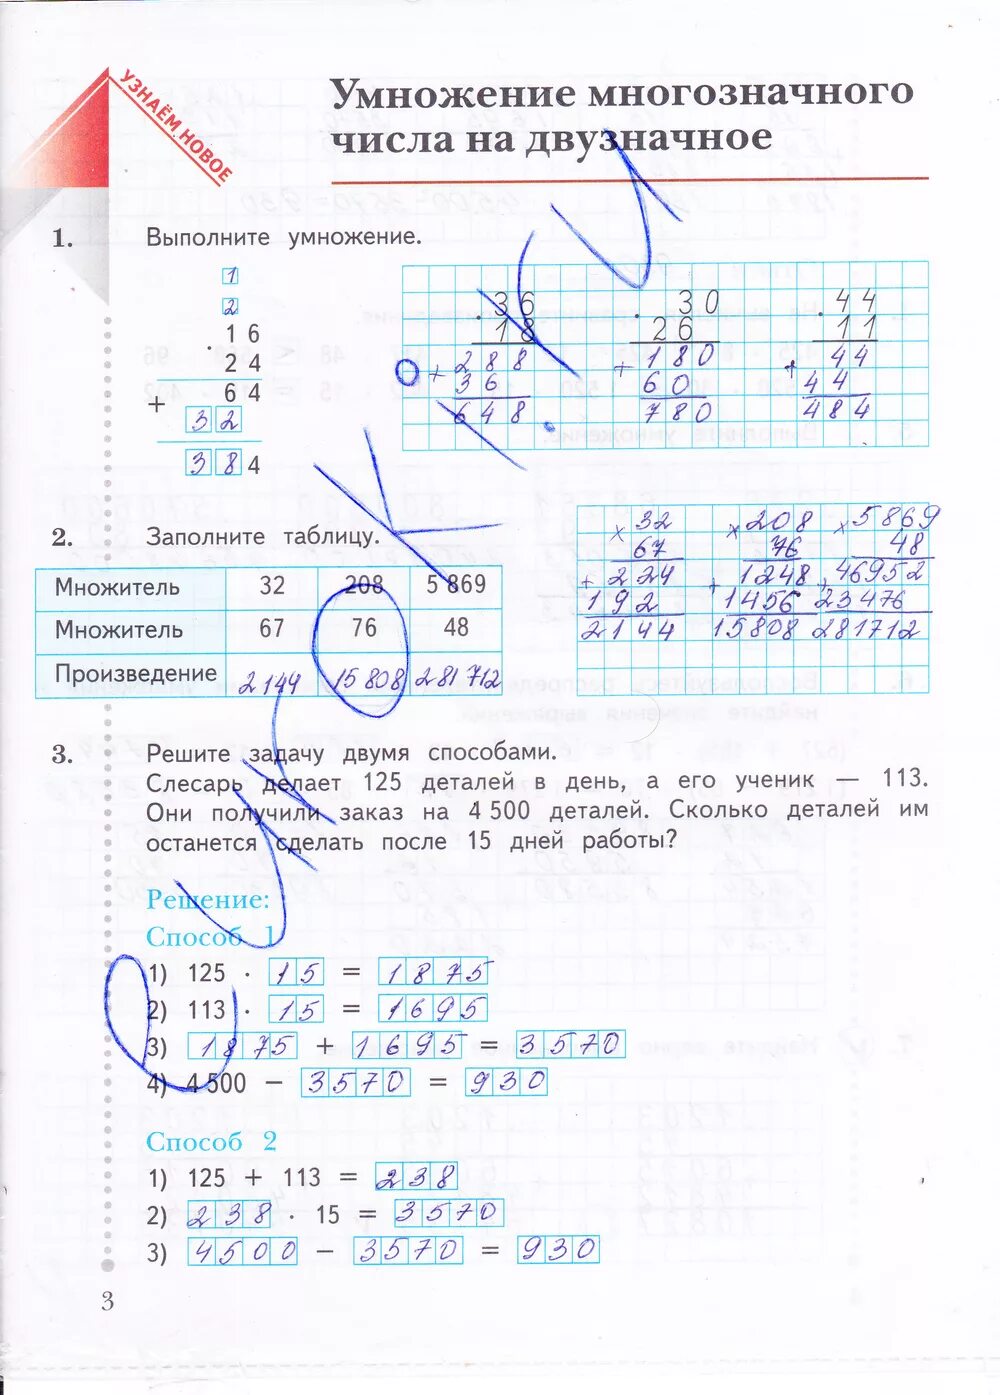 УЗНАЁМ НОВОЕ
Умножение многозначного
числа на двузначное
1. Выполните умножение.
1
2
· 16
24
64
+ 32
384
· 36
18
+ 288
36
648
· 30
26
+ 180
60
780
· 44
11
+ 44
44
484
2. Заполните таблицу.
Множитель 32 208 5 869
Множитель 67 76 48
Произведение 2144 15 808 281 712
× 32
67
+ 224
192
2144
× 208
76
+ 1248
1456
15808
× 5869
48
+ 46952
23476
281712
3. Решите задачу двумя способами.
Слесарь делает 125 деталей в день, а его ученик — 113.
Они получили заказ на 4 500 деталей. Сколько деталей им
останется сделать после 15 дней работы?
Решение:
Способ 1
1) 125 · 15 = 1875
2) 113 · 15 = 1695
3) 1875 + 1695 = 3570
4) 4 500 − 3570 = 930
Способ 2
1) 125 + 113 = 238
2) 238 · 15 = 3570
3) 4500 − 3570 = 930
3